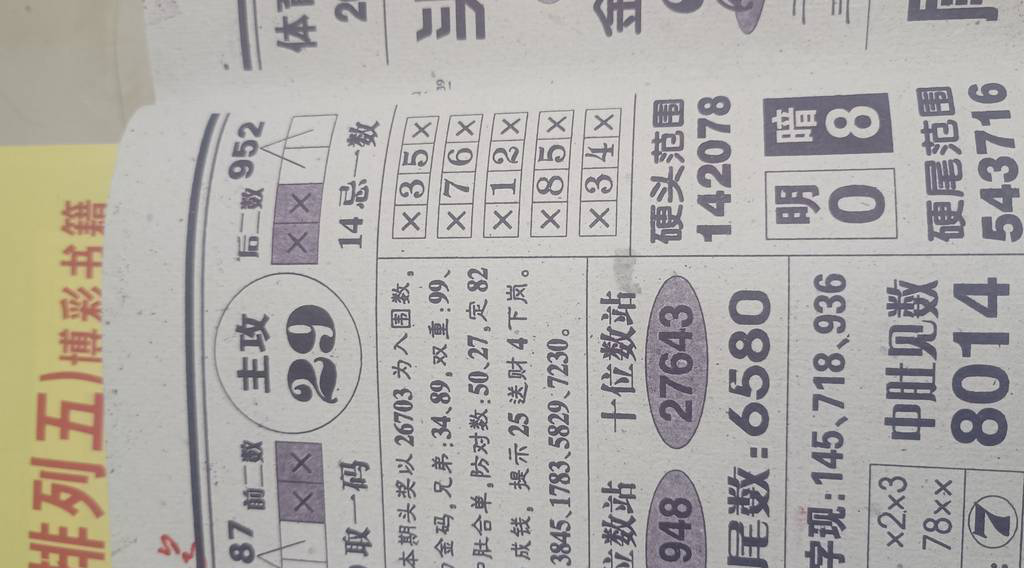 排列五)博彩书籍
87 前二数
××
取一码
主攻
29
后二数 952
××
14忌一数
本期头奖以26703为入围数,
金码,兄弟:34、89,双重:99、
胆合单,防对数:50、27,定82
成钱,提示25送财4下岗。
3845、1783、5829、7230。
×35×
×76×
×12×
×85×
×34×
位数站
948
十位数站
27643
尾数:6580
硬头范围
142078
明
0
暗
8
字现:145、718、936
×2×3
78××
7
中肚见数
8014
硬尾范围
543716